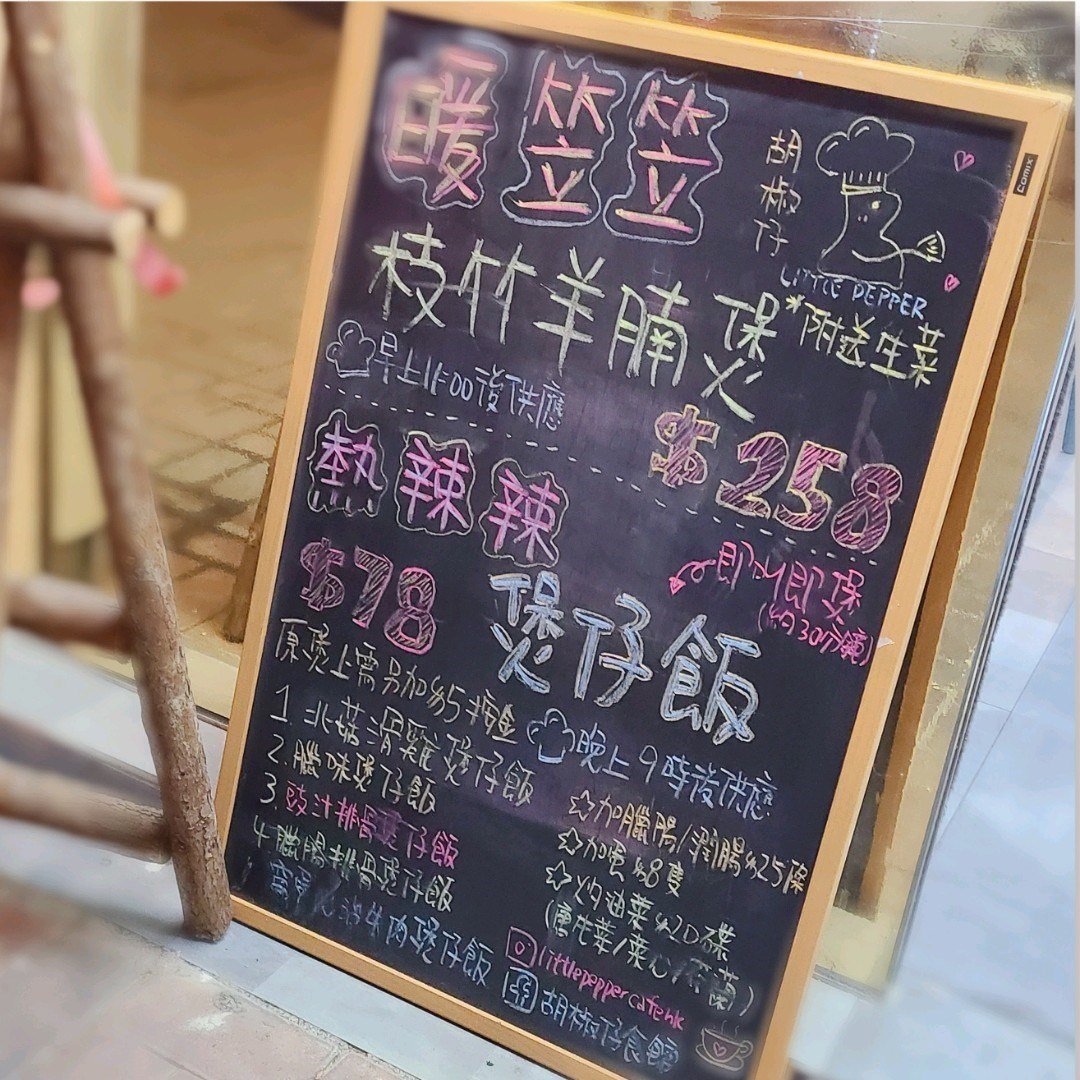 暖笠笠
胡椒仔
LITTLE PEPPER
枝竹羊腩煲
*附送生菜
早上11:00後供應
$258
熱辣辣
即叫即煲
(約30分鐘)
$78
煲仔飯
原煲上需另加$5按金
晚上9時後供應
1. 北菇滑雞煲仔飯
2. 臘味煲仔飯
3. 豉汁排骨煲仔飯
4. 臘腸排骨煲仔飯
牛肉煲仔飯
☆加臘腸/潤腸$25條
☆加蛋$8隻
☆灼油菜$20碟
(唐生菜/菜心/
littlepeppercafehk
胡椒仔食館
Comix